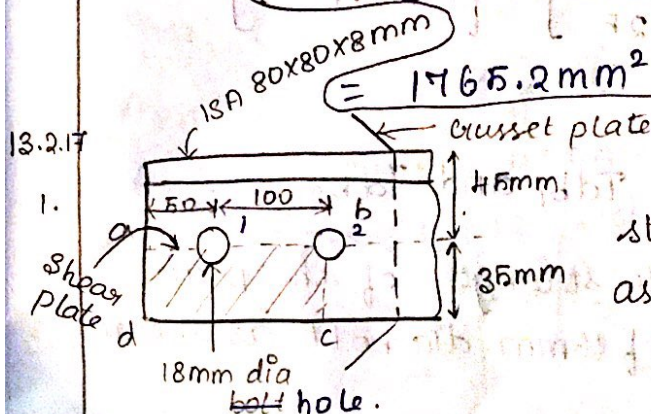 ISA 80x80x8mm
= 1765.2mm²
13.2.17
Gusset plate
1.
50
100
45mm.
a
1
b
2
Shear
plate
35mm
st
as
d
c
18mm dia
bolt hole.